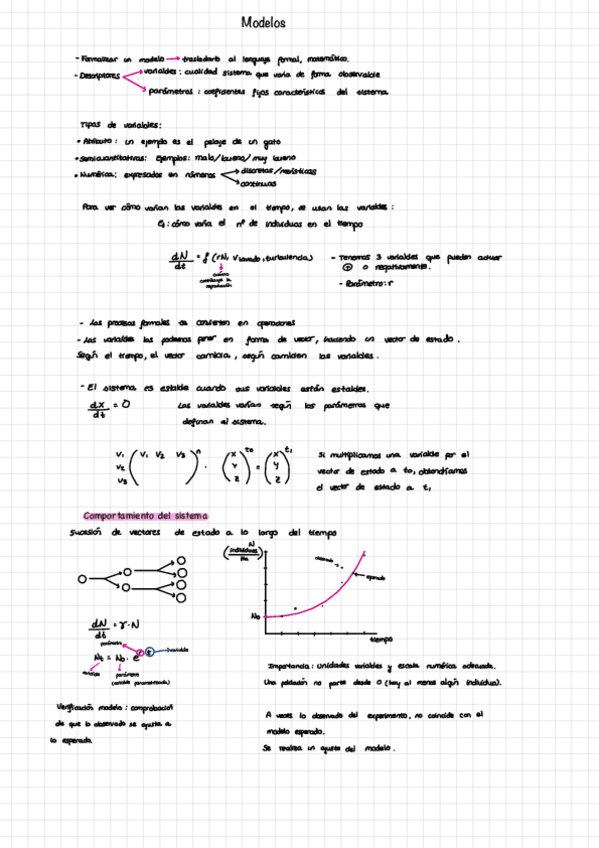 Modelos
- Formalizar un modelo → trasladarlo al lenguaje formal, matemático.
- Descriptores
variables: cualidad sistema que varia de forma observable
parámetros: coeficientes fijos característicos del sistema
Tipos de variables:
• Atributo: un ejemplo es el pelaje de un gato
• Semicuantitativas: Ejemplos: malo/bueno/muy bueno
• Numérica: expresados en números
discretas/merísticas
continuas
Para ver cómo varían las variables en el tiempo, se usan las variables:
Ej: cómo varía el nº de individuos en el tiempo
dN/dt = f (rN, Vlavado, turbulencia)
- Tenemos 3 variables que pueden actuar
⊕ o negativamente.
- Parámetro: r
- Los procesos formales se convierten en operadores
- Las variables las podemos poner en forma de vector, haciendo un vector de estado.
Según el tiempo, el vector cambia, según cambien las variables.
- El sistema es estable cuando sus variables están estables.
dx/dt = 0
Las variables varían según los parámetros que
definan el sistema.
V₁ V₂ V₃
V₁
V₂
V₃
n
X Y Z
t₀
=
X Y Z
t₁
Si multiplicamos una variable por el
vector de estado a t₀, obtendríamos
el vector de estado a t₁
Comportamiento del sistema
Sucesión de vectores de estado a lo largo del tiempo
N
(individuos/
observado
esperado
N₀
tiempo
dN/dt = r·N
parámetro
variable
Nt = N₀ · e^rt
variable
parámetro
(variable parametrizada)
Importancia: unidades variables y escala numérica adecuada.
Una población no parte desde 0 (hay al menos algún individuo).
Verificación modelo: comprobación
de que lo observado se ajusta a
lo esperado
A veces lo observado del experimento, no coincide con el
modelo esperado.
Se realiza un ajuste del modelo.